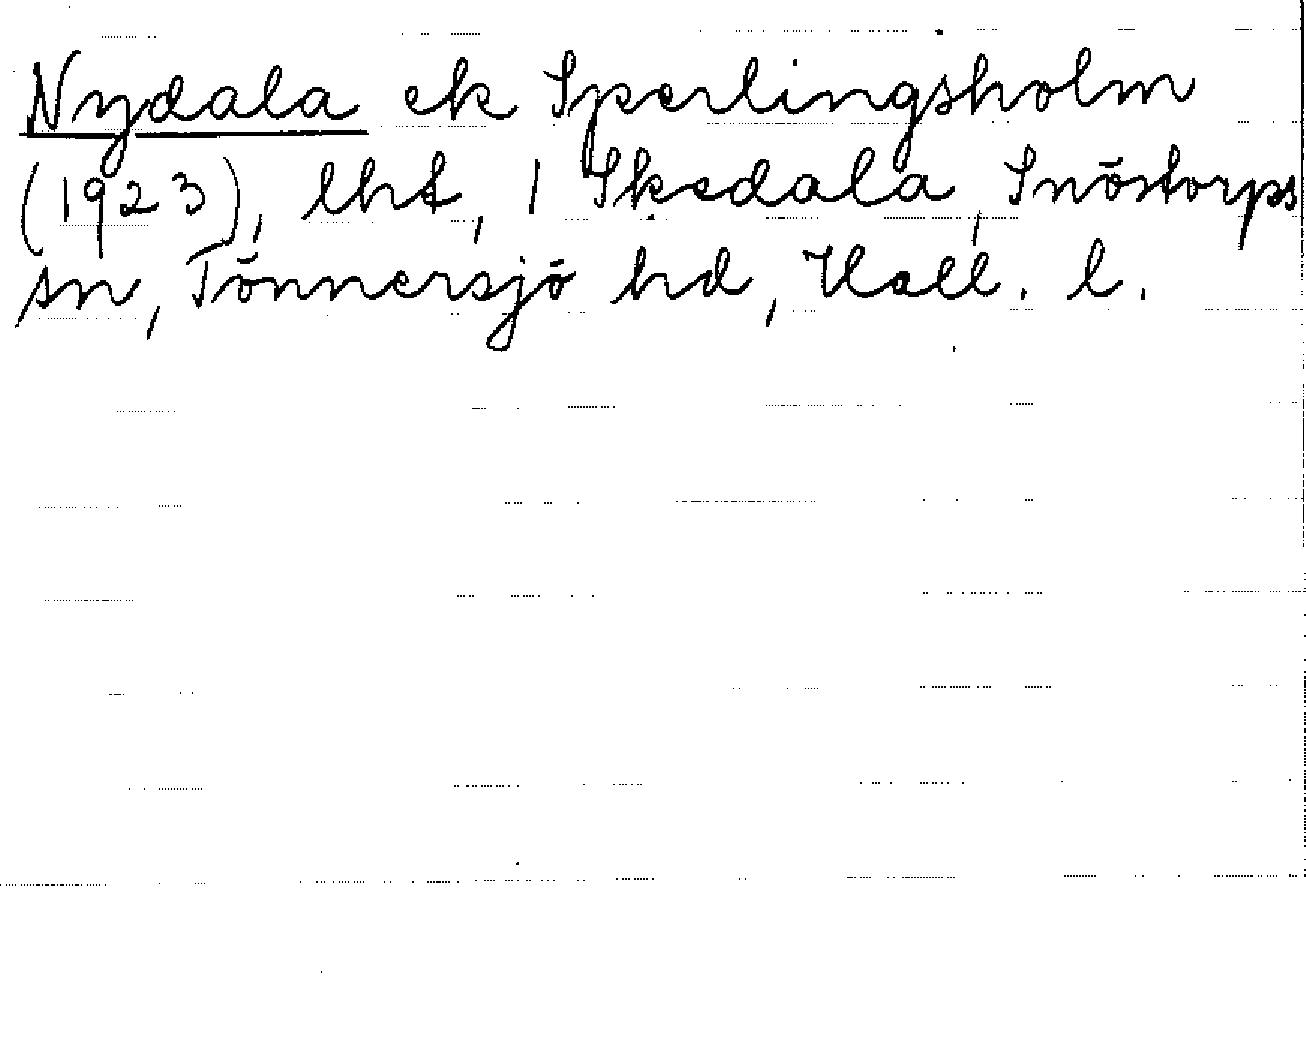 Nydala ek Sperlingsholm
(1923), lht, 1 Skedala, Snöstorps
sn, Tönnersjö hd, Hall. l.